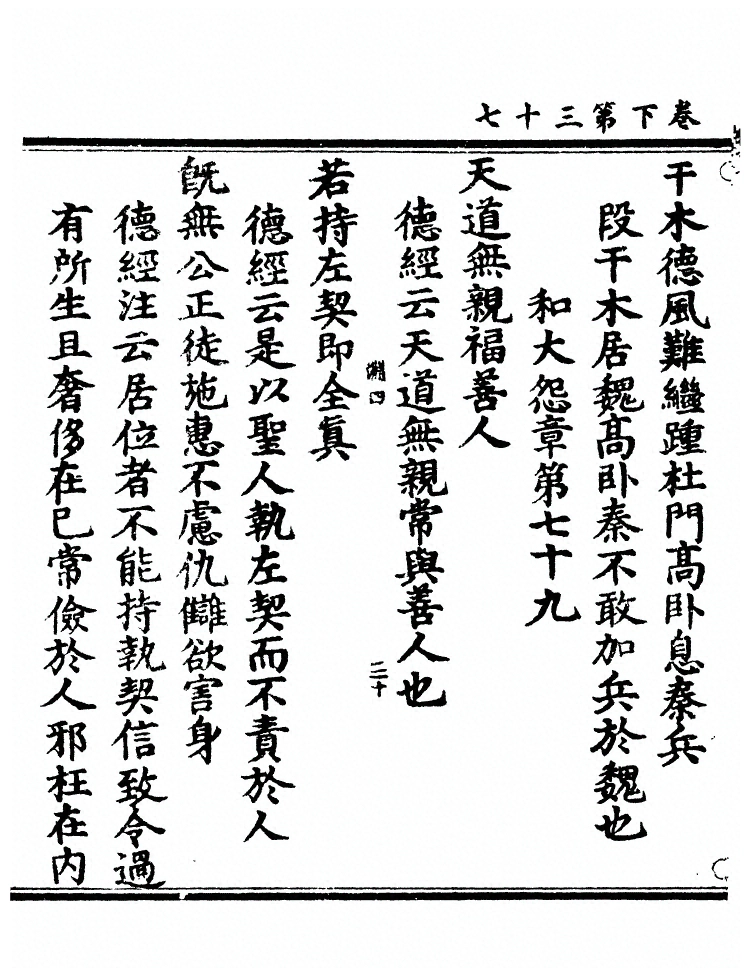 卷下第三十七
干木德風難繼踵杜門高卧息秦兵
段干木居魏高卧秦不敢加兵於魏也
和大怨章第七十九
天道無親福善人
德經云天道無親常與善人也
淵四
三十
若持左契即全真
德經云是以聖人執左契而不責於人
旣無公正徒施惠不慮仇讎欲害身
德經注云居位者不能持執契信致令過
有所生且奢侈在已常儉於人邪枉在內